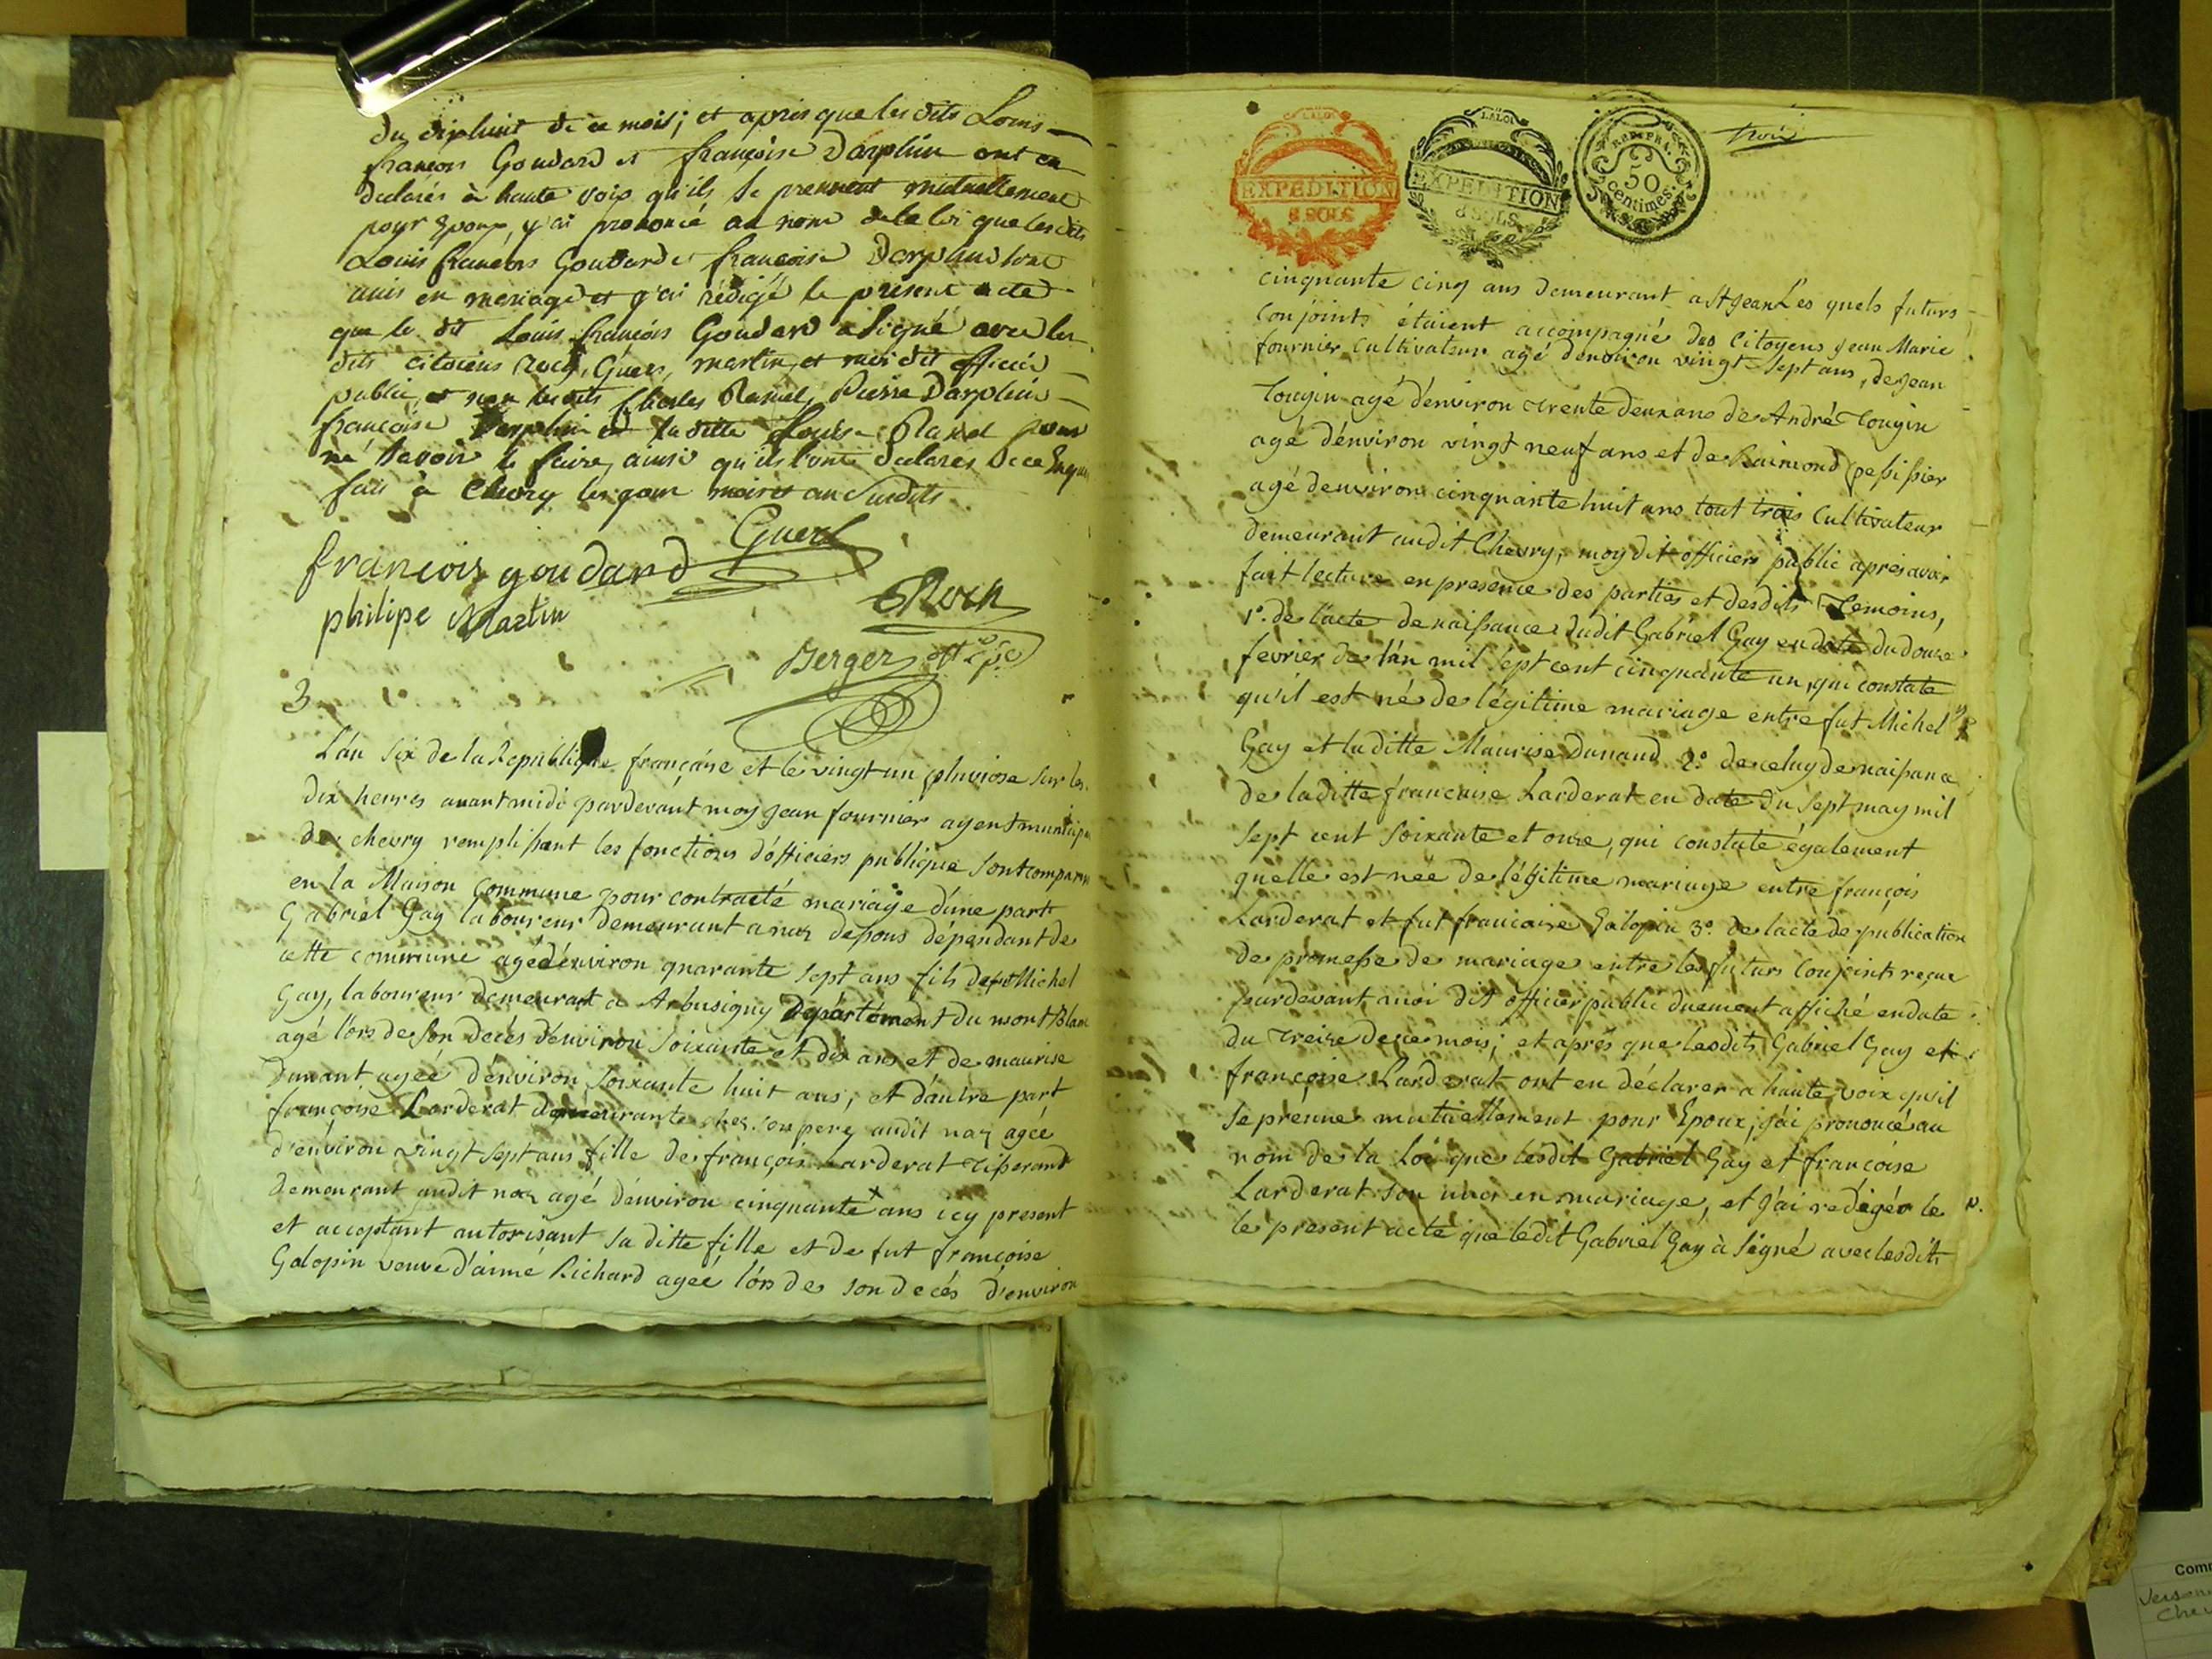 du dixhuit de ce mois; et apres que les dits Louis
francois Goudard et françoise Darphin ont en
declarés à haute voix qu'ils se prennent mutuellement
pour Epoux, j'ai prononcé au nom de la loi que les dits
Louis francois Goudard et francoise Darphin sont
unis en mariage et j'ai rédigé le présent acte
que le dit Louis francois Goudard a signé avec les
dits citoiens Roch, Guers, martin, et moi dit officier
public, et non les dits Charles Ravul, Pierre Darphin
françoise Darphin et la ditte Louise Ravel pour
ne savoir le faire, ainsi qu'ils l'ont declarés de ce Enquis
fait à Chevry les jour mois et an Susdits
Guers
francois goudard
Roch
philipe Martin
Berger off.er p.c
3
L'an six de la Republique françaíse et le vingt un pluviose sur les
dix heures avant midi pardevant moy Jean fournier agent municipa
de chevry remplissant les fonctions d'officiers publique sont comparu
en la Maison commune pour contracté mariage d'une part
Gabriel Gay laboureur demeurant a naz dessous dépendant de
cette commune agé d'environ quarante sept ans fils de fut Michel
Gay, laboureur demeurant a Arbusigny Département du mont Blanc
agé lors de son decés d'environ soixante et dix ans et de maurise
Dunant agéé d'environ soixante huit ans, et d'autre part
françoise Larderat demeurante chez son pere audit naz agéé
d'environ vingt sept ans fille de françois Larderat tisserand
demeurant audit naz agé d'environ cinquante ans icy present
et acceptant autorisant sa ditte fille et de fut françoise
Galopin veuve d'aimé Richard ageé lors de son decés d'environ
LA LOI
EXPEDITION
8 SOLS
LA LOI
EXPEDITION
8 SOLS
REP. FRA.
50
centimes.
trois
cinquante cinq ans demeurant a St Jean Les quels futurs
Conjoints étaient accompagné des Citoyens Jean Marie
fournier Cultivateur agé d'environ vingt sept ans, de Jean
Tougin agé d'environ trente deux ans de André Tougin
agé d'environ vingt neuf ans et de Raimond pessissier
agé d'environ cinquante huit ans tout trois Cultivateur
demeurant audit Chevry, moy dit officiers public après avoir
fait lecture en presence des parties et desdits Temoins,
1.° de l'acte de naissance dudit Gabriel Gay en date du douze
fevrier de l'an mil sept cent cinquante un, qui constate
qu'il est né de légitime mariage entre fut Michel
Gay et laditte Maurise Dunand 2.° de celuy de naissance
de laditte françoise Larderat en date du sept may mil
sept cent soixante et onze, qui constaté également
quelle est née de légitime mariage entre françois
Larderat et fut françoise Galopin 3.° de lacte de publication
de promesse de mariage entre les futurs Conjoints reçue
pardevant moi dit officier public duement affiché en date
du treize de ce mois; et après que lesdits Gabriel Gay et
françoise Larderat ont en déclarer a haute voix qu'il
se prenne mutuellement pour Epoux, j'ai prononcé au
nom de la Loi que lesdit Gabriel Gay et françoise
Larderat son unis en mariage, et j'ai redigér le
le present acte que ledit Gabriel Gay à signé avec lesdits